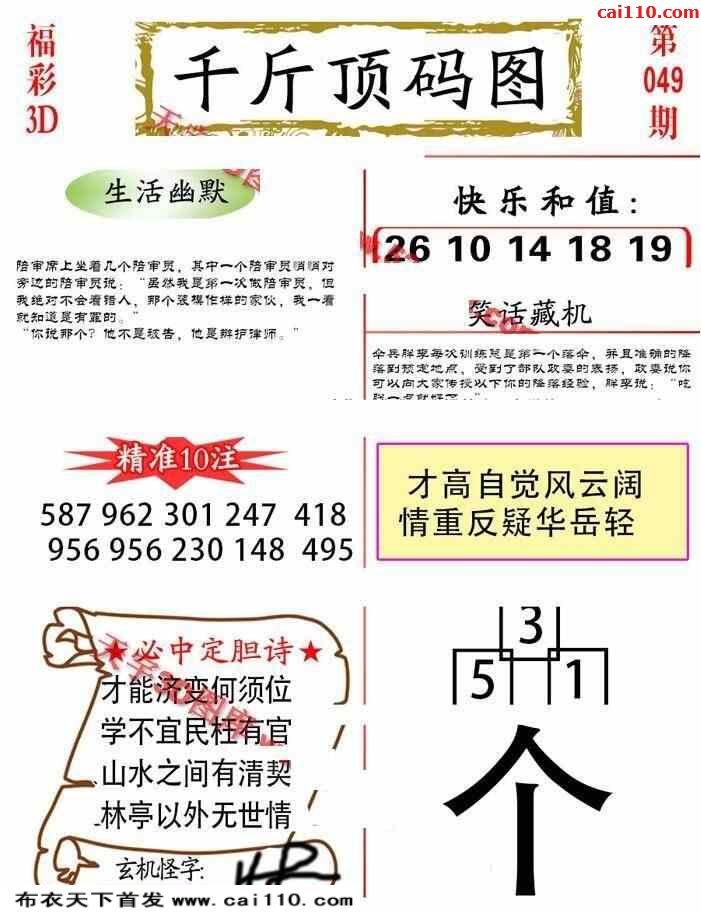 cai110.com
福彩3D
千斤顶码图
第049期
生活幽默
陪审席上坐着几个陪审员，其中一个陪审员悄悄对
旁边的陪审员说：“虽然我是第一次做陪审员，但
我绝对不会看错人，那个装模作样的家伙，我一看
就知道是有罪的。”
“你说那个？他不是被告，他是辩护律师。”
快乐和值：
26 10 14 18 19
笑话藏机
伞兵胖李每次训练总是第一个落伞，并且准确的降
落到预定地点，受到了部队政委的表扬，政委说你
可以向大家传授以下你的降落经验，胖李说：“吃
精准10注
587 962 301 247 418
956 956 230 148 495
才高自觉风云阔
情重反疑华岳轻
★必中定胆诗★
才能济变何须位
学不宜民枉有官
山水之间有清契
林亭以外无世情
玄机怪字:
3
5 1
个
布衣天下首发 www.cai110.com